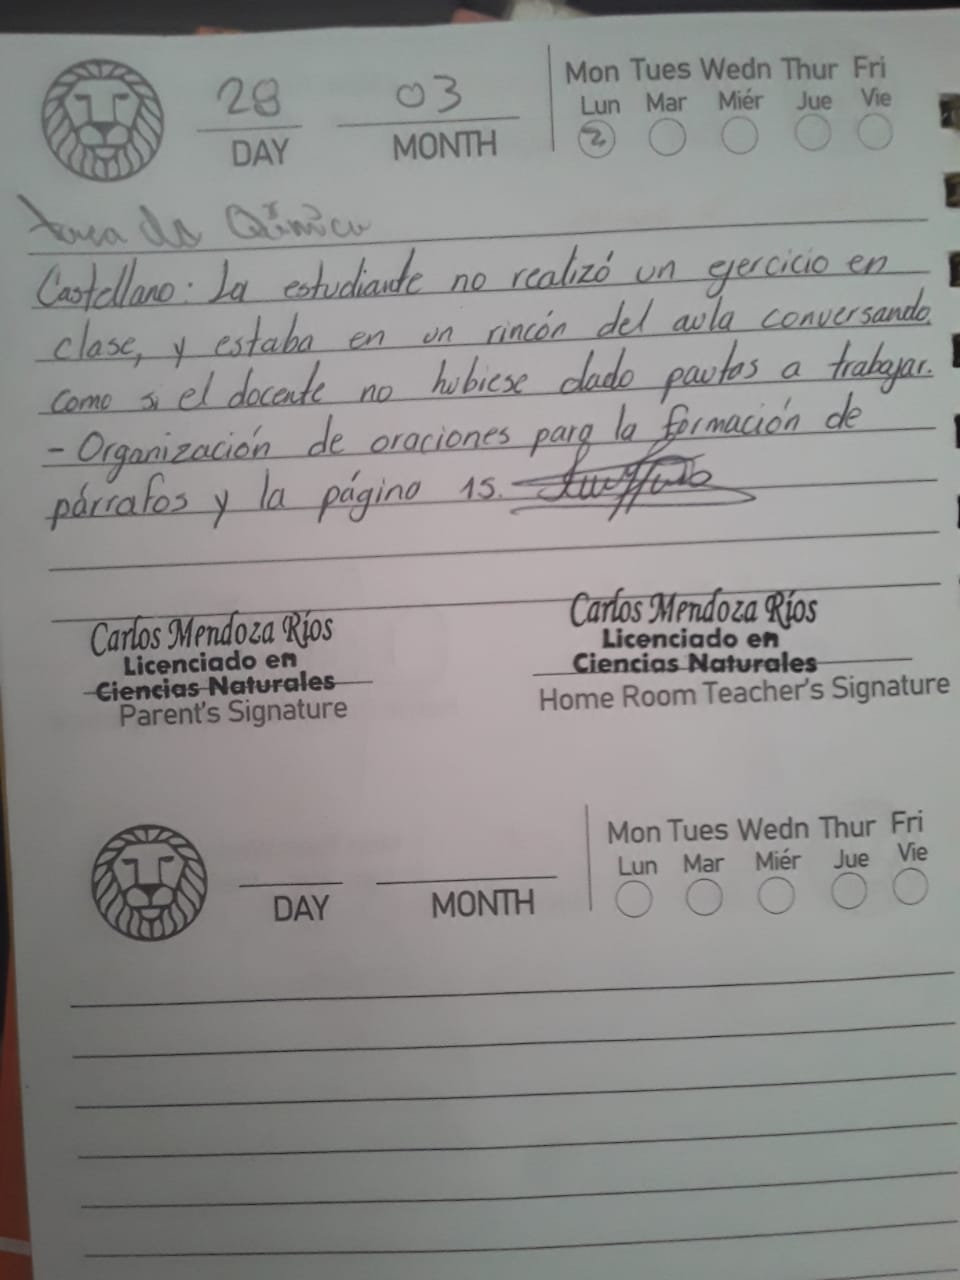 28 03
DAY MONTH
Mon Tues Wedn Thur Fri
Lun Mar Miér Jue Vie
2
tarea de Química
Castellano: La estudiante no realizó un ejercicio en
clase, y estaba en un rincón del aula conversando,
como si el docente no hubiese dado pautas a trabajar.
- Organización de oraciones para la formación de
párrafos y la página 15.
Carlos Mendoza Ríos
Licenciado en
Ciencias Naturales
Parent's Signature
Carlos Mendoza Ríos
Licenciado en
Ciencias Naturales
Home Room Teacher's Signature
DAY MONTH
Mon Tues Wedn Thur Fri
Lun Mar Miér Jue Vie